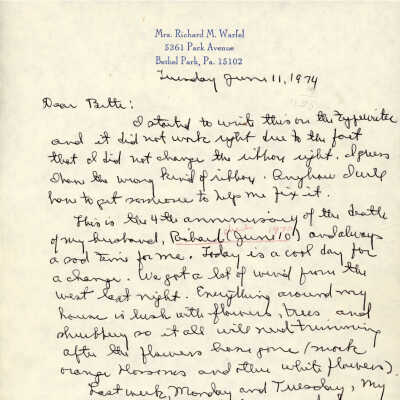 Mrs. Richard M. Warfel
5361 Park Avenue
Bethel Park, Pa. 15102
Tuesday June 11, 1974
Dear Bette:
I started to write this on the typewriter
and it did not work right due to the fact
that I did not change the ribbon right. I guess
I have the wrong kind of ribbon. Anyhow I will
have to get someone to help me fix it.
This is the 4th anniversary of the death
of my husband, Richard (June 10) and always
a sad time for me. Today is a cool day for
a change. We got a lot of wind from the
west last night. Everything around my
house is lush with flowers, trees and
shrubbery so it all will need trimming
after the flowers have gone (mock
orange blossoms and other white flowers).
Last week, Monday and Tuesday, my